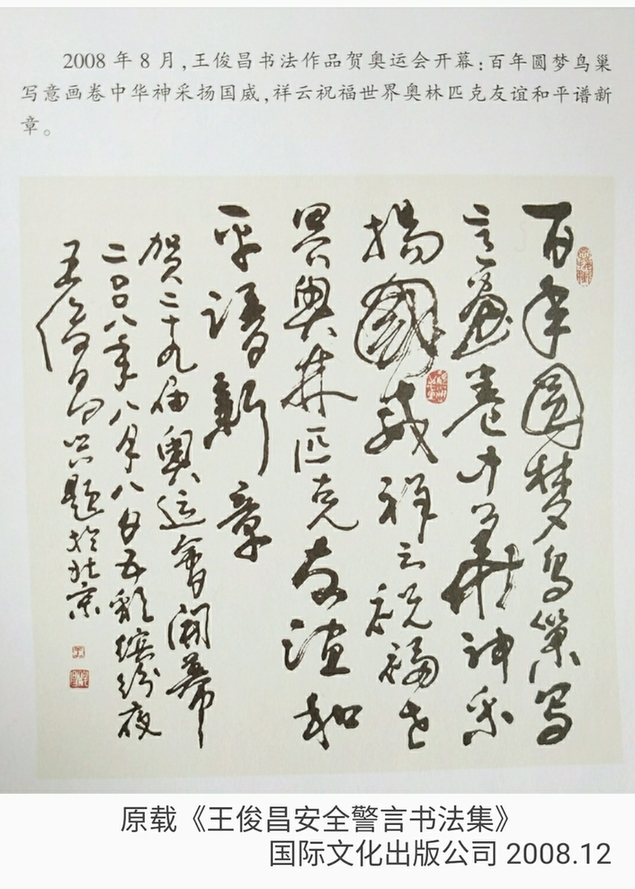 2008 年 8 月，王俊昌书法作品贺奥运会开幕：百年圆梦鸟巢
写意画卷中华神采扬国威，祥云祝福世界奥林匹克友谊和平谱新
章。
百年圆梦鸟巢写
意画卷中華神采
揚國威祥云祝福世
界奥林匹克友谊和
平谱新章
贺二十九届奥运會開幕
二〇〇八年八月八日五彩缤纷夜
王俊昌即兴题於北京
原载《王俊昌安全警言书法集》
国际文化出版公司 2008.12